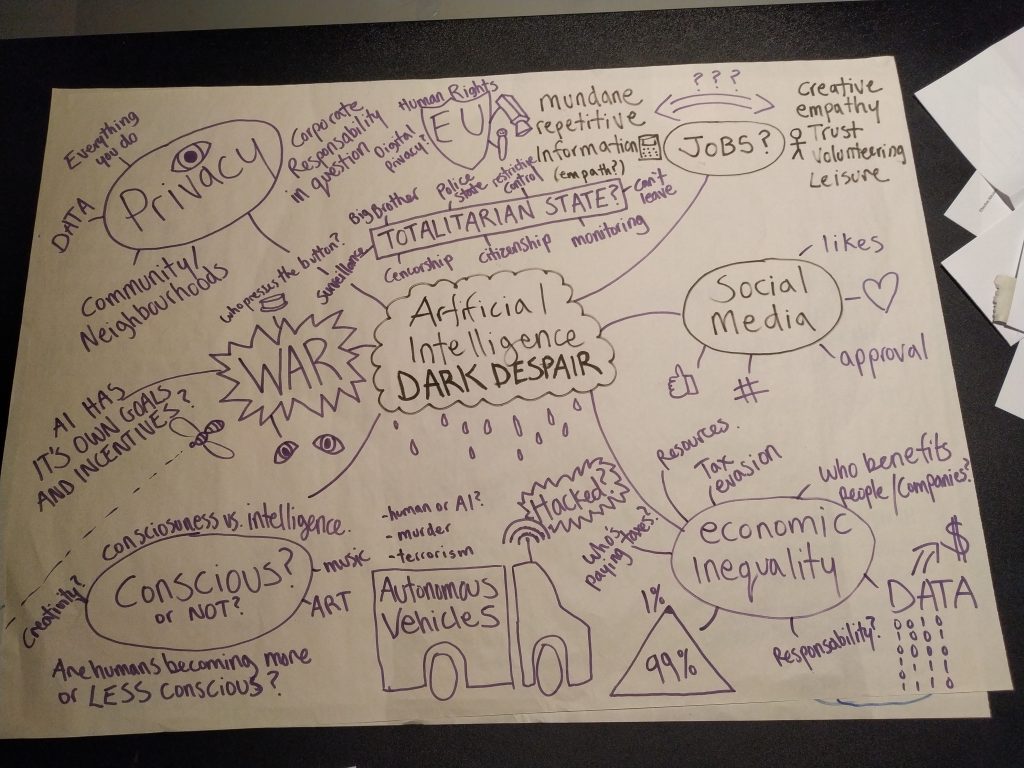 Everything
you do
DATA
Privacy
Community/
Neighbourhoods
Corporate
Responsability
in question
Digital
privacy?
Human Rights
EU
mundane
repetitive
Information
(empath?)
? ? ?
JOBS?
creative
empathy
Trust
Volunteering
Leisure
Big Brother
Police
state
restrictive
control
can't
leave
TOTALITARIAN STATE?
surveillance
cencorship
citizenship
monitoring
who presses the button?
WAR
AI HAS
IT'S OWN GOALS
AND INCENTIVES?
Artificial
Intelligence
DARK DESPAIR
Social
Media
likes
approval
#
Resources
Tax
evasion
who benefits
people/companies?
economic
inequality
who's
paying taxes?
1%
99%
Responsability?
$
DATA
0 0 0 0
Hacked?
-human or AI?
-murder
-terrorism
Autonomous
Vehicles
consciosness vs. intelligence
Conscious?
or NOT?
music
ART
Creativity?
Are humans becoming more
or LESS conscious?